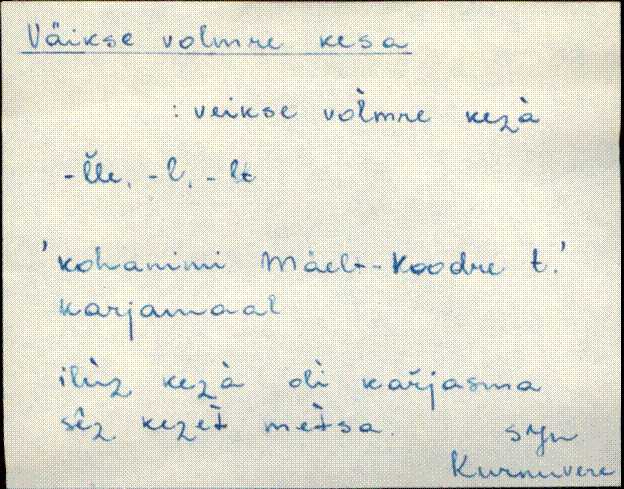 Väikse volmre kesa
: veikse vol̀mre kezà
- l̆le, -l, -lt
'kohanimi Mäelt-Koodre t.'
karjamaal
ilùz kezà olì kar̆jasma
sêz kezèt mètsa.
Kurnuvere